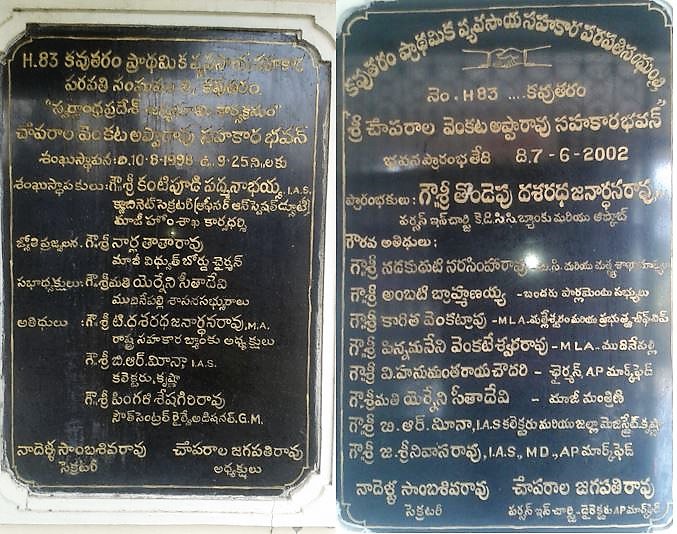 H.83 కవుతరం ప్రాథమిక వ్యవసాయ సహకార
పరపతి సంఘము లి, కవుతరం
చాపరాల వెంకట అప్పారావు సహకార భవన్
శంఖుస్థాపన: ది.10-8-1998 ఉ. 9-25 ని॥లకు
శంఖుస్థాపకులు: గౌ॥శ్రీ కంటిపూడి పద్మనాభయ్య, I.A.S.
క్యాబినెట్ సెక్రటరీ (ఆఫీసర్ ఆన్ స్పెషల్ డ్యూటీ)
మాజీ హోంశాఖ కార్యదర్శి
జ్యోతి ప్రజ్వలన: గౌ॥శ్రీ నార్ల తాతారావు
మాజీ విద్యుత్ బోర్డు ఛైర్మన్
సభాధ్యక్షులు: గౌ॥శ్రీమతి యెర్నేని సీతాదేవి
ముదినేపల్లి శాసనసభ్యురాలు
అతిధులు : గౌ॥శ్రీ టి.దశరధ జనార్ధనరావు, M.A.
రాష్ట్ర సహకార బ్యాంకు అధ్యక్షులు
గౌ॥శ్రీ బి.ఆర్.మీనా I.A.S.
కలెక్టరు, కృష్ణా
గౌ॥శ్రీ పింగళి శేషగిరిరావు
సౌత్ సెంట్రల్ రైల్వే అడిషనల్. G.M.
నాదెళ్ళ సాంబశివరావు చాపరాల జగపతిరావు
సెక్రటరీ అధ్యక్షులు
కవుతరం ప్రాథమిక వ్యవసాయ సహకార పరపతి సంఘం లి,
నెం. H83 .... కవుతరం
"శ్రీ చాపరాల వెంకట అప్పారావు సహకార భవన్"
భవన ప్రారంభ తేది ది.7-6-2002
ప్రారంభకులు: గౌ॥శ్రీ తొండెపు దశరధ జనార్ధనరావు
పర్సన్ ఇన్ చార్జి కె.డి.సి.సి. బ్యాంకు మరియు ఆప్కాబ్
గౌరవ అతిధులు:
గౌ॥శ్రీ నడకుదుటి నరసింహారావు
గౌ॥శ్రీ అంబటి బ్రాహ్మణయ్య - బందరు పార్లమెంటు సభ్యులు
గౌ॥శ్రీ కాగిత వెంకట్రావు - MLA. మల్లేశ్వరం మరియు ప్రభుత్వ చీఫ్ విప్
గౌ॥శ్రీ పిన్నమనేని వెంకటేశ్వరరావు - MLA. ముదినేపల్లి
గౌ॥శ్రీ వి.హనుమంతరాయ చౌదరి - ఛైర్మన్, AP మార్క్ ఫెడ్
గౌ॥శ్రీమతి యెర్నేని సీతాదేవి - మాజీ మంత్రిణి
గౌ॥శ్రీ బి.ఆర్.మీనా, I.A.S కలెక్టరు మరియు జిల్లా మెజిస్ట్రేట్, కృష్ణ
గౌ॥శ్రీ జి.శ్రీనివాసరావు, I.A.S., MD., AP మార్క్ ఫెడ్
నాదెళ్ళ సాంబశివరావు చాపరాల జగపతిరావు
సెక్రటరీ పర్సన్ ఇన్ చార్జి - డైరెక్టరు AP మార్క్ ఫెడ్